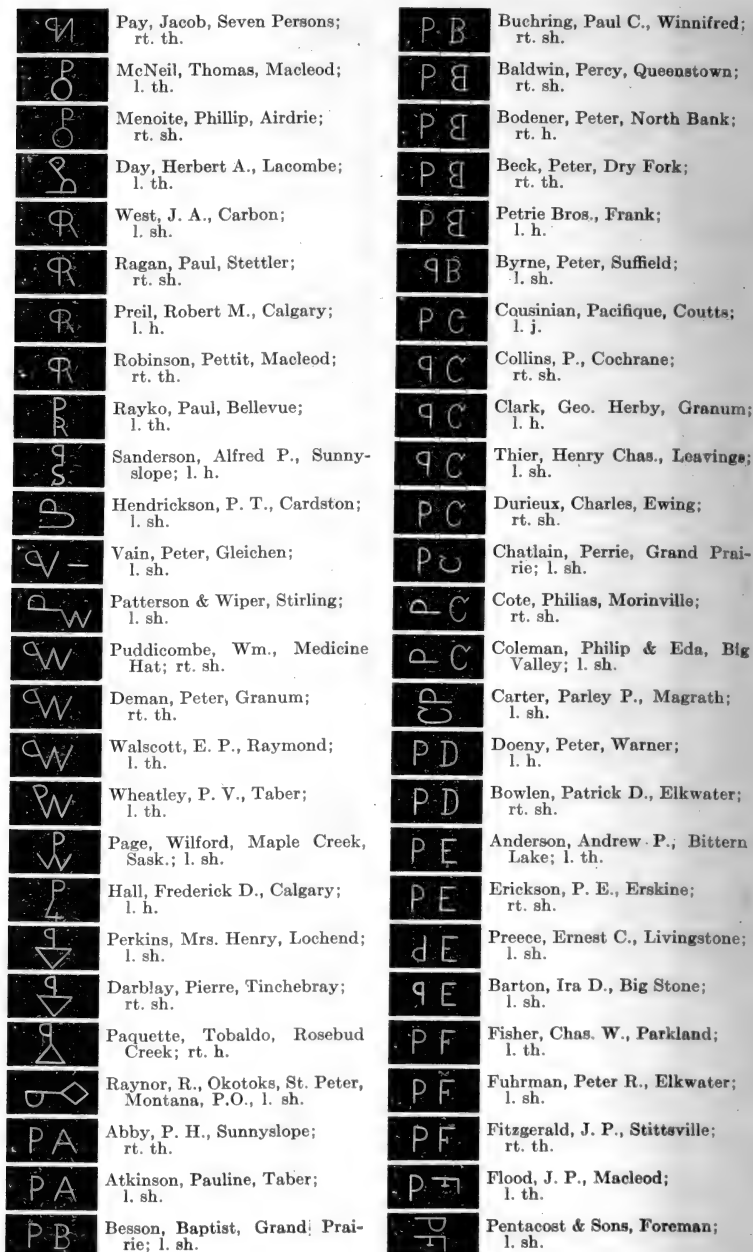 Pay, Jacob, Seven Persons;
rt. th.
McNeil, Thomas, Macleod;
l. th.
Menoite, Phillip, Airdrie;
rt. sh.
Day, Herbert A., Lacombe;
l. th.
West, J. A., Carbon;
l. sh.
Ragan, Paul, Stettler;
rt. sh.
Preil, Robert M., Calgary;
l. h.
Robinson, Pettit, Macleod;
rt. th.
Rayko, Paul, Bellevue;
l. th.
Sanderson, Alfred P., Sunny-
slope; l. h.
Hendrickson, P. T., Cardston;
l. sh.
Vain, Peter, Gleichen;
l. sh.
Patterson & Wiper, Stirling;
l. sh.
Puddicombe, Wm., Medicine
Hat; rt. sh.
Deman, Peter, Granum;
rt. th.
Walscott, E. P., Raymond;
l. th.
Wheatley, P. V., Taber;
l. th.
Page, Wilford, Maple Creek,
Sask.; l. sh.
Hall, Frederick D., Calgary;
l. h.
Perkins, Mrs. Henry, Lochend;
l. sh.
Darblay, Pierre, Tinchebray;
rt. sh.
Paquette, Tobaldo, Rosebud
Creek; rt. h.
Raynor, R., Okotoks, St. Peter,
Montana, P.O., l. sh.
P A Abby, P. H., Sunnyslope;
rt. th.
P A Atkinson, Pauline, Taber;
l. sh.
P B Besson, Baptist, Grand Prai-
rie; l. sh.
P B Buchring, Paul C., Winnifred;
rt. sh.
Baldwin, Percy, Queenstown;
rt. sh.
Bodener, Peter, North Bank;
rt. h.
Beck, Peter, Dry Fork;
rt. th.
Petrie Bros., Frank;
l. h.
Byrne, Peter, Suffield;
l. sh.
P C Cousinian, Pacifique, Coutts;
l. j.
Collins, P., Cochrane;
rt. sh.
Clark, Geo. Herby, Granum;
l. h.
Thier, Henry Chas., Leavings;
l. sh.
P C Durieux, Charles, Ewing;
rt. sh.
Chatlain, Perrie, Grand Prai-
rie; l. sh.
Cote, Philias, Morinville;
rt. sh.
Coleman, Philip & Eda, Big
Valley; l. sh.
Carter, Parley P., Magrath;
l. sh.
P D Doeny, Peter, Warner;
l. h.
P D Bowlen, Patrick D., Elkwater;
rt. sh.
P E Anderson, Andrew P., Bittern
Lake; l. th.
P E Erickson, P. E., Erskine;
rt. sh.
Preece, Ernest C., Livingstone;
l. sh.
Barton, Ira D., Big Stone;
l. sh.
P F Fisher, Chas. W., Parkland;
l. th.
P F Fuhrman, Peter R., Elkwater;
l. sh.
P F Fitzgerald, J. P., Stittsville;
rt. th.
Flood, J. P., Macleod;
l. th.
Pentacost & Sons, Foreman;
l. sh.